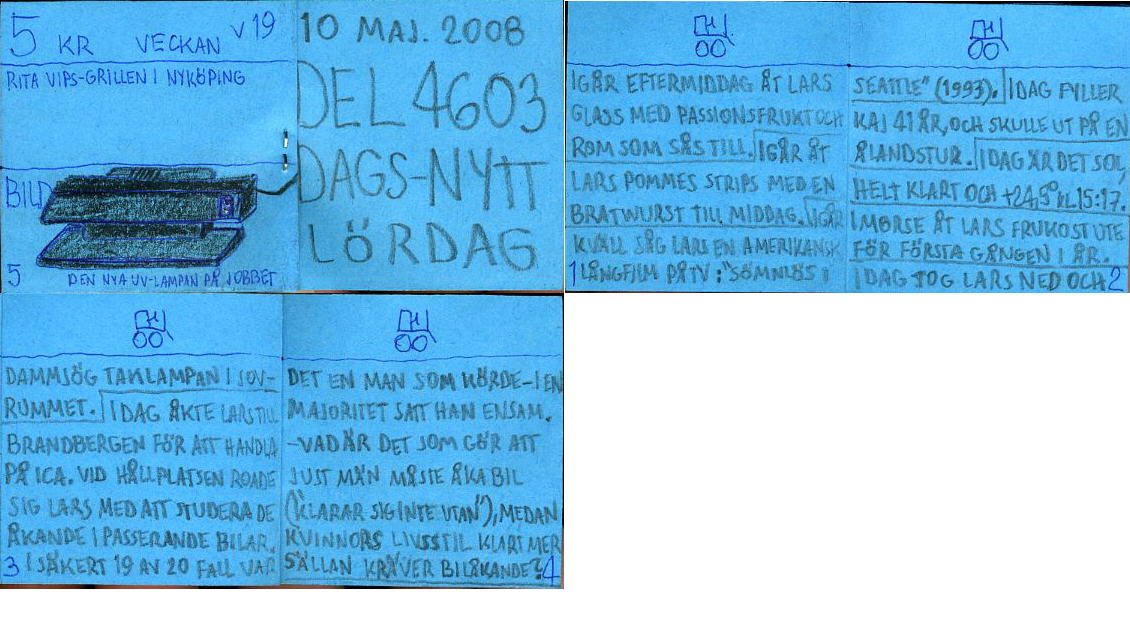 5 KR VECKAN V 19
RITA VIPS-GRILLEN I NYKÖPING
BILD
5 DEN NYA UV-LAMPAN PÅ JOBBET
10 MAJ. 2008
DEL 4603
DAGS-NYTT
LÖRDAG
IGÅR EFTERMIDDAG ÅT LARS
GLASS MED PASSIONSFRUKT OCH
ROM SOM SÅS TILL. IGÅR ÅT
LARS POMMES STRIPS MED EN
BRATWURST TILL MIDDAG. IGÅR
KVÄLL SÅG LARS EN AMERIKANSK
1 LÅNGFILM PÅ TV: "SÖMNLÖS I
SEATTLE" (1993). IDAG FYLLER
KAJ 41 ÅR, OCH SKULLE UT PÅ EN
ÅLANDSTUR. IDAG ÄR DET SOL,
HELT KLART OCH +24,5° KL 15:17.
I MORSE ÅT LARS FRUKOST UTE
FÖR FÖRSTA GÅNGEN I ÅR.
IDAG TOG LARS NED OCH 2
DAMMSÖG TAKLAMPAN I SOV-
RUMMET. IDAG ÅKTE LARS TILL
BRANDBERGEN FÖR ATT HANDLA
PÅ ICA. VID HÅLLPLATSEN ROADE
SIG LARS MED ATT STUDERA DE
ÅKANDE I PASSERANDE BILAR.
3 I SÄKERT 19 AV 20 FALL VAR
DET EN MAN SOM KÖRDE - I EN
MAJORITET SATT HAN ENSAM.
-VAD ÄR DET SOM GÖR ATT
JUST MÄN MÅSTE ÅKA BIL
("KLARAR SIG INTE UTAN"), MEDAN
KVINNORS LIVSSTIL KLART MER
SÄLLAN KRÄVER BILÅKANDE? 4